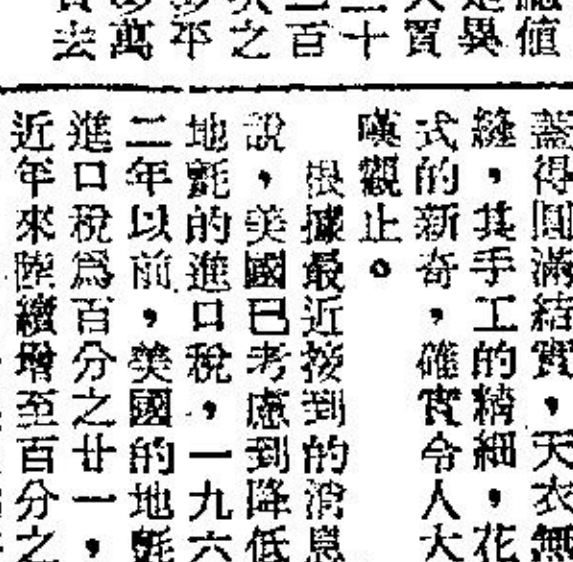 值
異
十
百
之
平
萬
去
蓋得圓滿結實，天衣無
縫，其手工的精細，花
式的新奇，確實令人大
嘆觀止。
根據最近接到的消息
說，美國已考慮到降低
地氈的進口稅，一九六
二年以前，美國的地氈
進口稅爲百分之廿一，
近年來陸續增至百分之